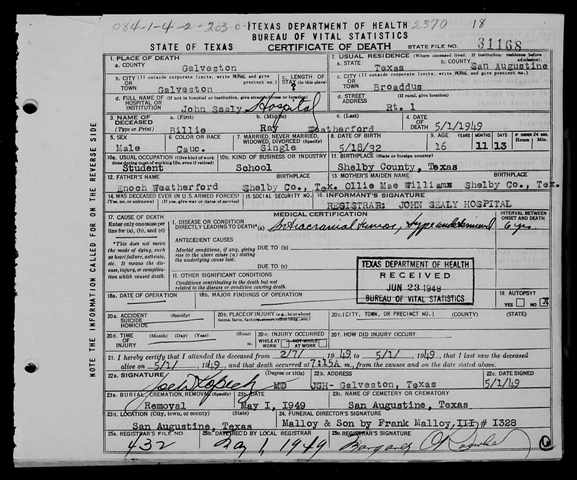 TEXAS DEPARTMENT OF HEALTH 2370 18
BUREAU OF VITAL STATISTICS
STATE OF TEXAS CERTIFICATE OF DEATH STATE FILE NO. 31168
1. PLACE OF DEATH
a. COUNTY Galveston
2. USUAL RESIDENCE (Where deceased lived. If institution: residence before admission)
a. STATE Texas b. COUNTY San Augustine
b. CITY (If outside corporate limits, write RURAL and give precinct no.) OR TOWN Galveston
c. LENGTH OF STAY (in this place)
c. CITY (If outside corporate limits, write RURAL and give precinct no.) OR TOWN Broaddus
d. FULL NAME OF HOSPITAL OR INSTITUTION John Sealy Hospital
d. STREET ADDRESS Rt. 1
3. NAME OF DECEASED (Type or Print)
a. (First) Billie b. (Middle) Ray c. (Last) Weatherford
4. DATE OF DEATH 5/1/1949
5. SEX Male
6. COLOR OR RACE Cauc.
7. MARRIED, NEVER MARRIED, WIDOWED, DIVORCED (Specify) Single
8. DATE OF BIRTH 5/18/32
9. AGE YEARS 16 MONTHS 11 DAYS 13
10a. USUAL OCCUPATION (Give kind of work done during most of working life, even if retired) Student
10b. KIND OF BUSINESS OR INDUSTRY School
11. BIRTHPLACE (State or foreign country) Shelby County, Texas
12. FATHER'S NAME BIRTHPLACE
Enoch Weatherford Shelby Co., Tex.
13. MOTHER'S MAIDEN NAME BIRTHPLACE
Ollie Mae Williams Shelby Co., Tex.
14. WAS DECEASED EVER IN U.S. ARMED FORCES? (Yes, no, or unknown) (If yes, give war or dates of service)
15. SOCIAL SECURITY NO.
16. INFORMANT'S SIGNATURE
REGISTRAR: JOHN SEALY HOSPITAL
17. CAUSE OF DEATH
Enter only one cause per line for (a), (b), and (c)
MEDICAL CERTIFICATION
INTERVAL BETWEEN ONSET AND DEATH
I. DISEASE OR CONDITION DIRECTLY LEADING TO DEATH (a) Intracranial tumor, 6 yrs
*This does not mean the mode of dying, such as heart failure, asthenia, etc. It means the disease, injury, or complication which caused death.
ANTECEDENT CAUSES
Morbid conditions, if any, giving rise to the above cause (a) stating the underlying cause last.
DUE TO (b)
DUE TO (c)
II. OTHER SIGNIFICANT CONDITIONS
Conditions contributing to the death but not related to the disease or condition causing death.
TEXAS DEPARTMENT OF HEALTH
RECEIVED
JUN 23 1949
BUREAU OF VITAL STATISTICS
18a. DATE OF OPERATION
18b. MAJOR FINDINGS OF OPERATION
19. AUTOPSY YES NO X
20a. ACCIDENT SUICIDE HOMICIDE (Specify)
20b. PLACE OF INJURY
20c. (CITY, TOWN, OR PRECINCT NO.) (COUNTY) (STATE)
20d. TIME OF INJURY (Month) (Day) (Year) (Hour)
20e. INJURY OCCURRED WHILE AT WORK NOT WHILE AT WORK
20f. HOW DID INJURY OCCUR?
21. I hereby certify that I attended the deceased from 2/7/ 1949 to 5/1/ 1949, that I last saw the deceased
alive on 5/1/ 1949, and that death occurred at m., from the causes and on the date stated above.
22a. SIGNATURE (Degree or title) MD
22b. ADDRESS JSH- Galveston, Texas
22c. DATE SIGNED 5/1/49
23a. BURIAL, CREMATION, REMOVAL (Specify) Removal
23b. DATE May 1, 1949
23c. NAME OF CEMETERY OR CREMATORY San Augustine, Texas
23d. LOCATION (City, town, or county) (State) San Augustine, Texas
24. FUNERAL DIRECTOR'S SIGNATURE
Malloy & Son by Frank Malloy, III, # 1328
25a. REGISTRAR'S FILE NO. 432
25b. DATE REC'D BY LOCAL REGISTRAR May 1, 1949
25c. REGISTRAR'S SIGNATURE
NOTE THE INFORMATION CALLED FOR ON THE REVERSE SIDE